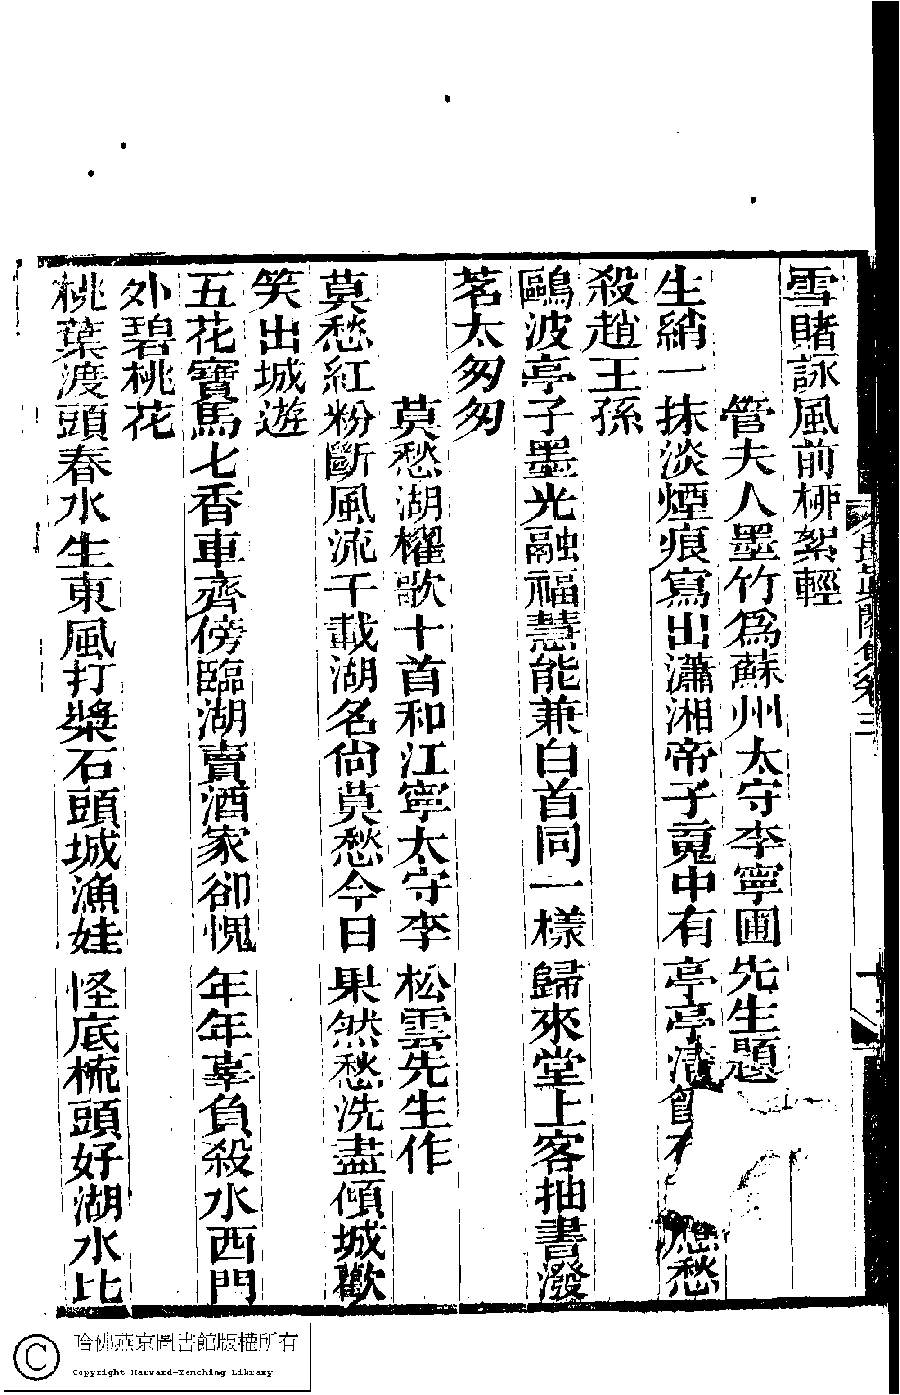 雪賭詠風前柳絮輕
管夫人墨竹爲蘇州太守李寧圃先生題
生綃一抹淡煙痕寫出瀟湘帝子䰟中有亭亭淸節在應愁
殺趙王孫
鷗波亭子墨光融福慧能兼白首同一樣歸來堂上客抽書潑
茗太匆匆
莫愁湖櫂歌十首和江寧太守李松雲先生作
莫愁紅粉斷風流千載湖名尙莫愁今日果然愁洗盡傾城歡
笑出城遊
五花寶馬七香車齊傍臨湖賣酒家卻愧年年辜負殺水西門
外碧桃花
桃葉渡頭春水生東風打槳石頭城漁娃怪底梳頭好湖水比
卷三
哈佛燕京圖書館版權所有
Copyright Harvard-Yenching Library